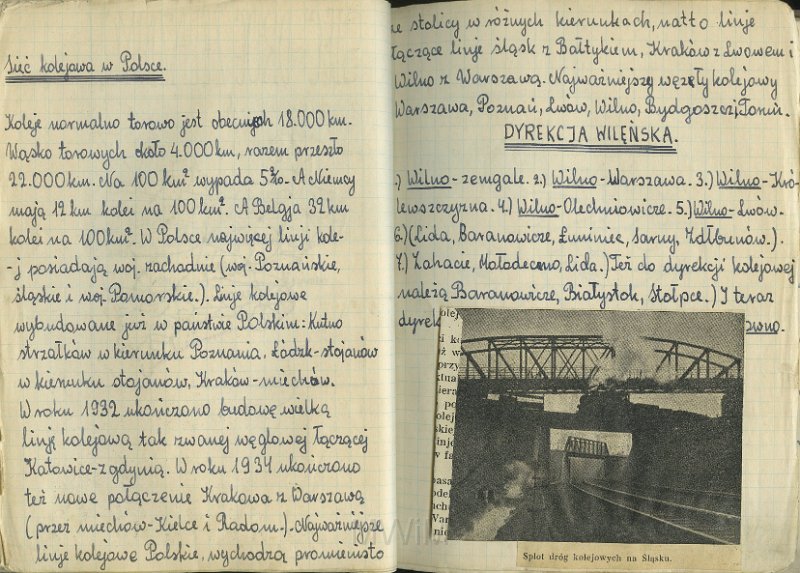 Sieć kolejowa w Polsce.
Koleje normalno torowo jest obecnych 18.000 km.
Wąsko torowych około 4.000 km, razem przeszło
22.000 km. Na 100 km² wypada 5%. A Niemcy
mają 12 km kolei na 100 km². A Belgja 32 km
kolei na 100 km². W Polsce najwięcej linji kole-
-j posiadają woj. zachodnie (woj. Poznańskie,
śląskie i woj. Pomorskie.). Linje kolejowe
wybudowane już w państwie Polskim: Kutno
strzałków w kierunku Poznania, Łódzk-stojanów
w kierunku stojanów, Kraków-miechów.
W roku 1932 ukończono budowę wielką
linję kolejową tak zwanej węglowej łączącej
Katowice-z gdynią. W roku 1934 ukończono
też nowe połączenie Krakowa z Warszawą
(przez miechów-Kielce i Radom.). Najważniejsze
linje kolejowe Polskie, wychodzą promienisto
ne stolicy w różnych kierunkach, natto linje
łączące linje śląsk z Bałtykiem, Kraków z Lwowem i
Wilno z Warszawą. Najważniejszy węzęły kolejowy
Warszawa, Poznań, Lwów, Wilno, Bydgoszcz, Toruń.
DYREKCJA WILEŃSKA.
.) Wilno-zemgale. 2.) Wilno-Warszawa. 3.) Wilno-Kró-
lewszczyzna. 4.) Wilno-Olechniowicze. 5.) Wilno-Lwów.
6.) (Lida, Baranowicze, Łuniniec, Sarny, Zdłbunów.).
7.) Zahacie, Mołodeczno, Lida.) Też do dyrekcji kolejowej
należą Baranowicze, Białystok, Stołpce.) I teraz
dyrek
Splot dróg kolejowych na Śląsku.